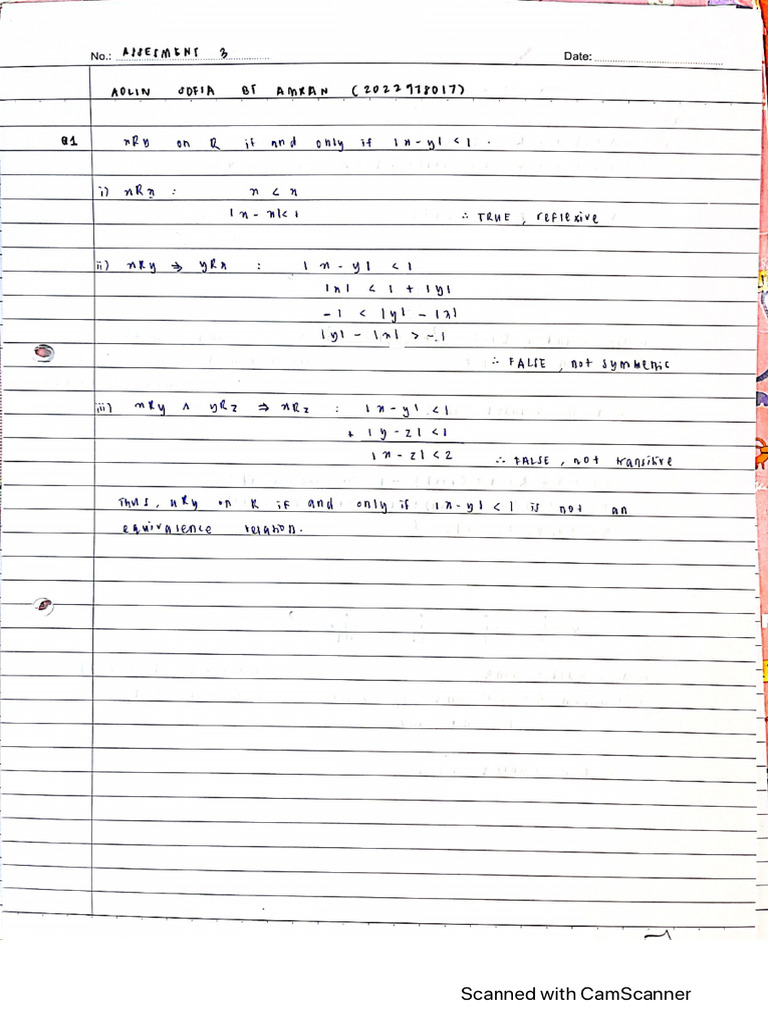 No.: ASSESMENT 3 Date:
ADLIN SOFIA BT AMRAN (2022978017)
Q1 xRy on R if and only if |x-y| < 1 .
i) xRx : x < x
|x - x| < 1 ∴ TRUE , reflexive
ii) xRy ⇒ yRx : |x - y| < 1
|x| < 1 + |y|
-1 < |y| - |x|
|y| - |x| > -1
∴ FALSE , not symmetric
iii) xRy ∧ yRz ⇒ xRz : |x - y| < 1
+ |y - z| < 1
|x - z| < 2 ∴ FALSE , not transitive
Thus, xRy on R if and only if |x-y| < 1 is not an
equivalence relation.
Scanned with CamScanner